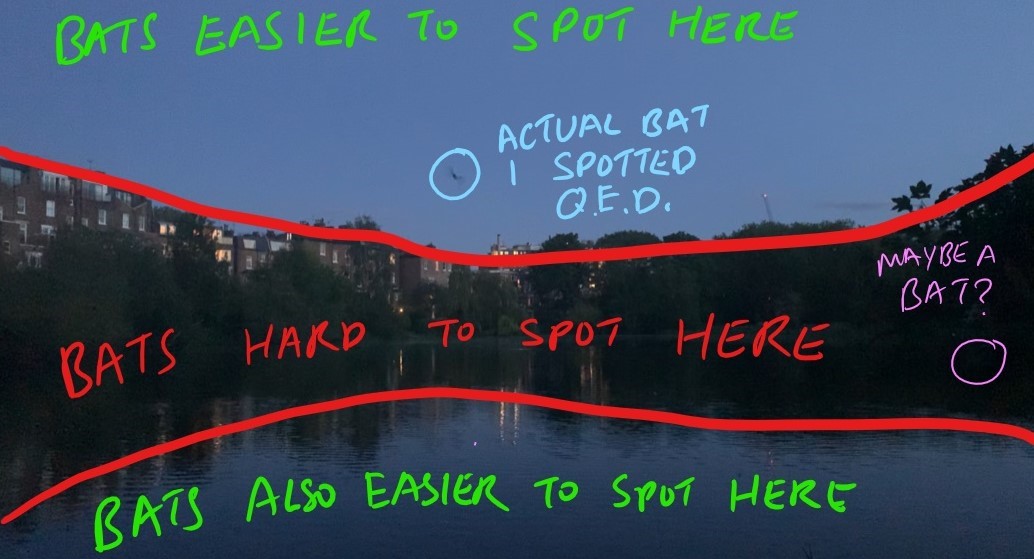 BATS EASIER TO SPOT HERE
ACTUAL BAT
I SPOTTED
Q.E.D.
MAYBE A
BAT?
BATS HARD TO SPOT HERE
BATS ALSO EASIER TO SPOT HERE